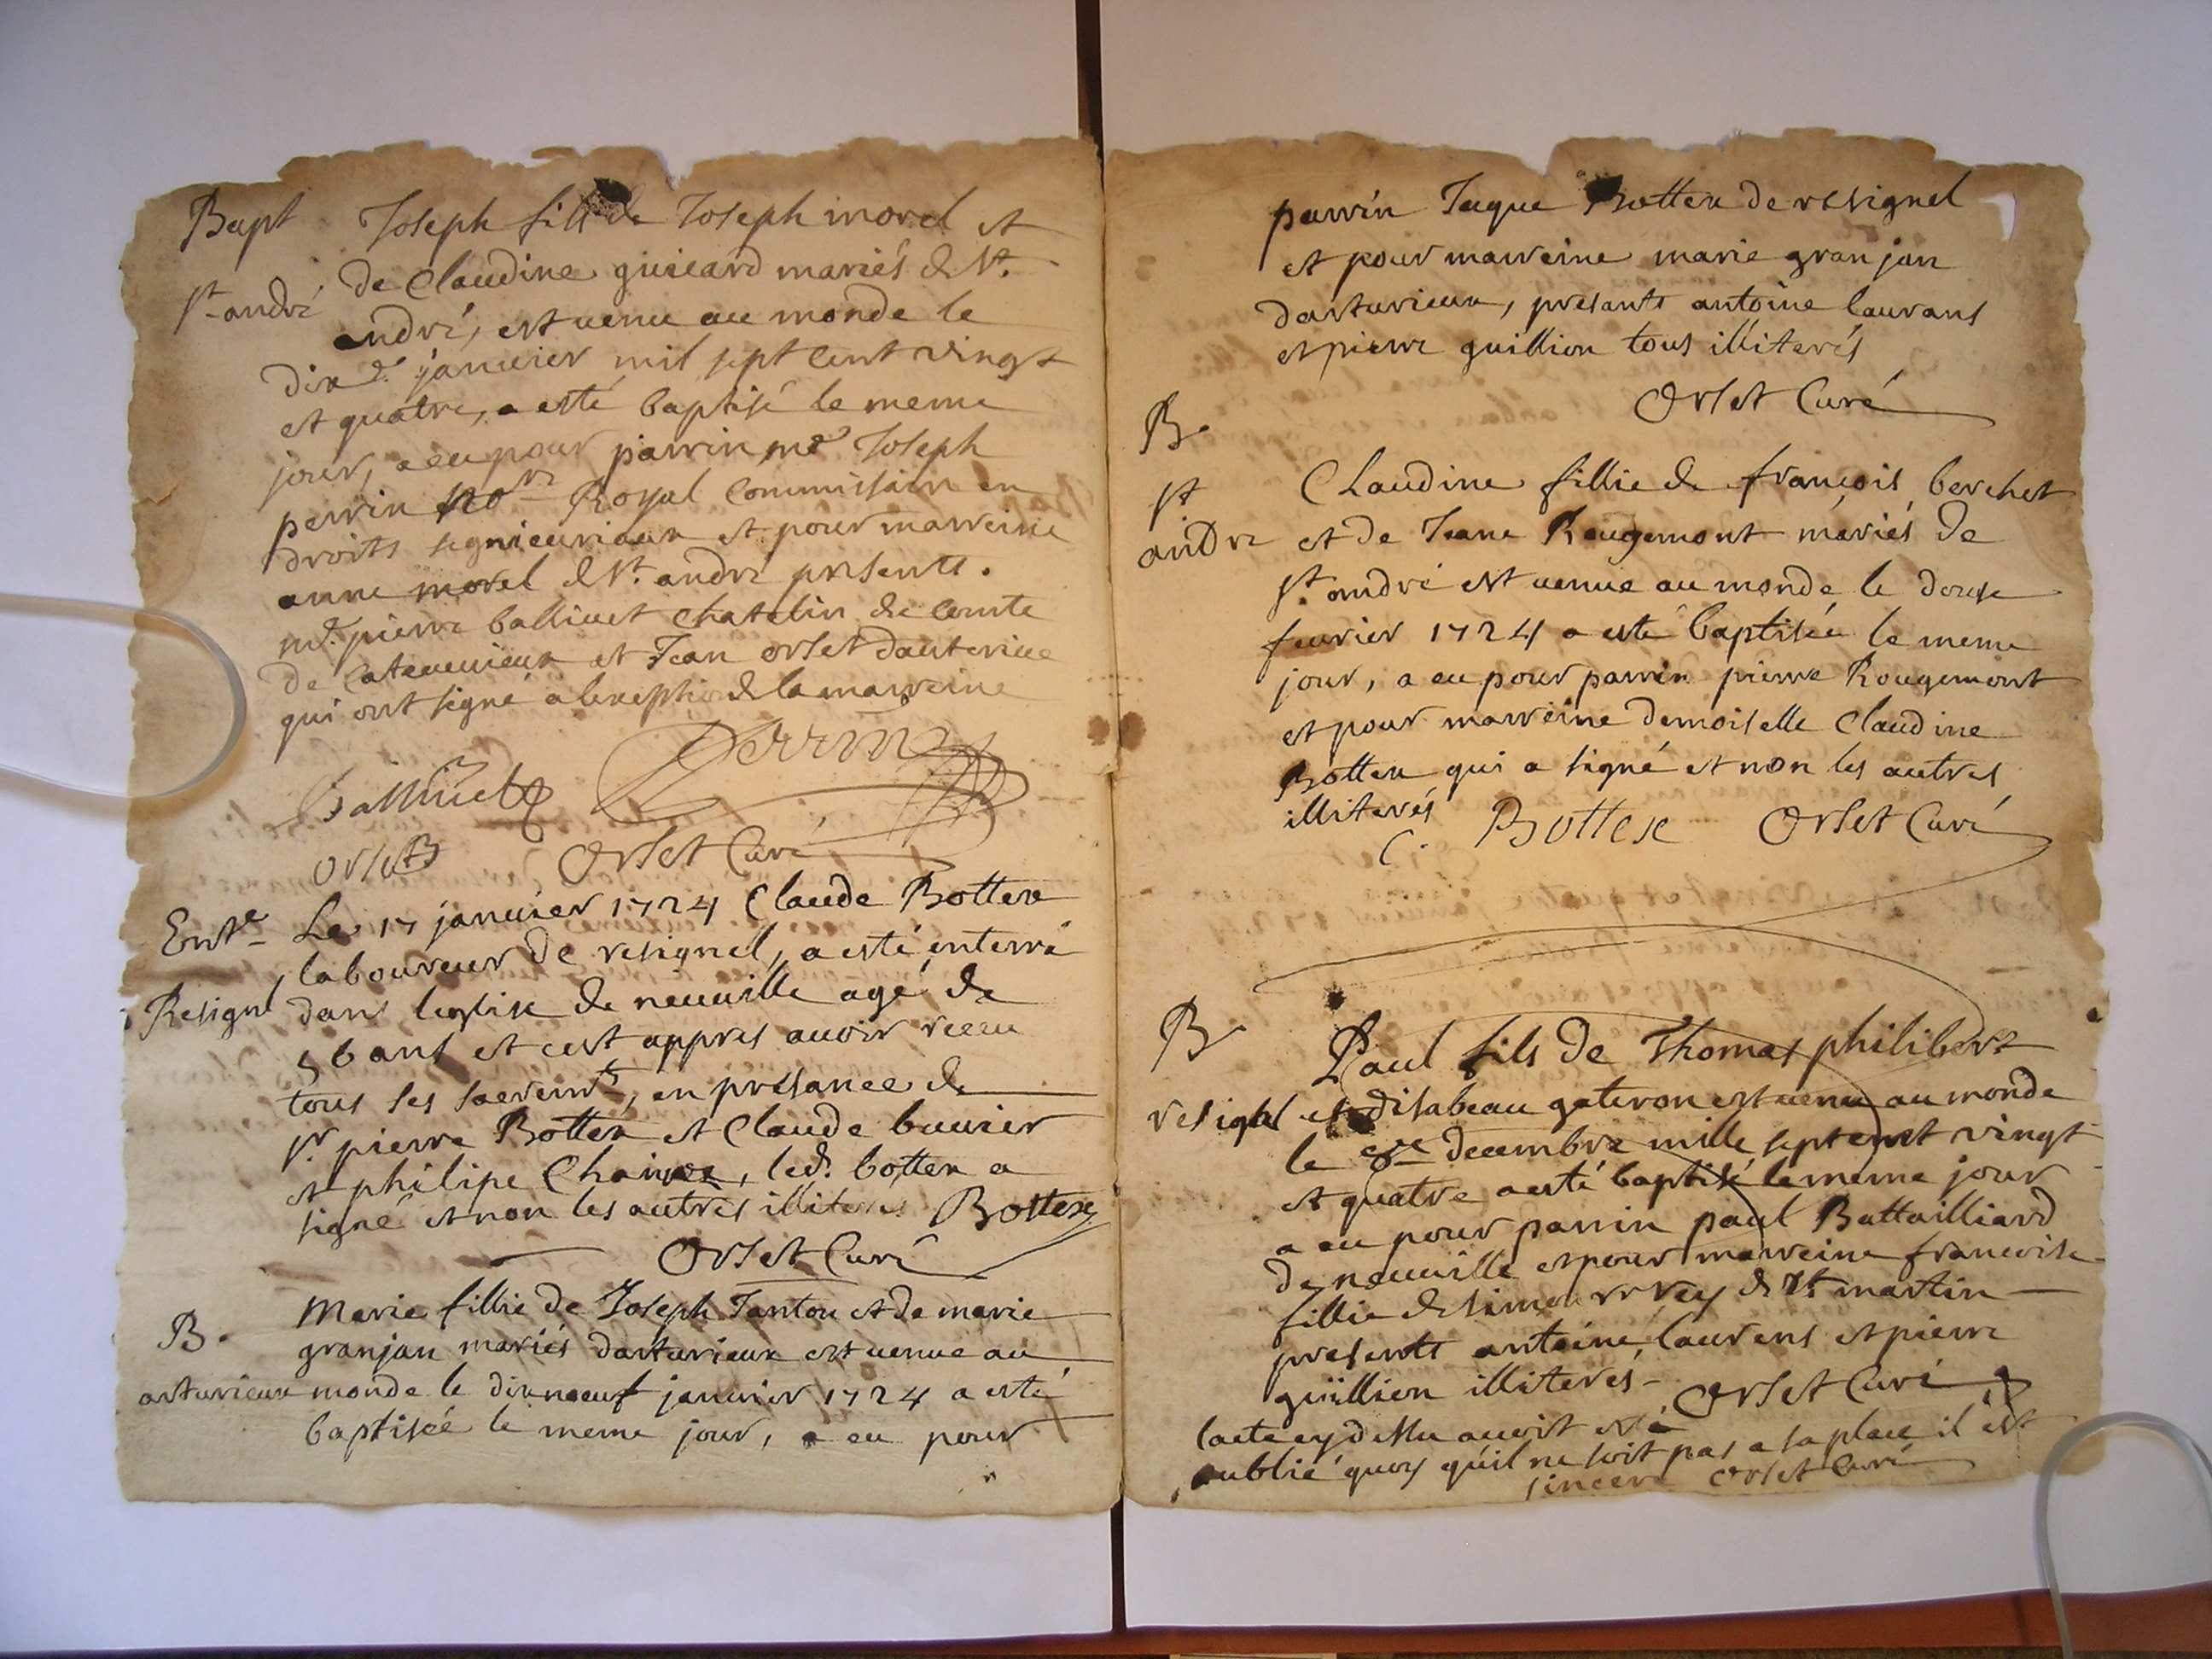 Bapt Joseph fils de Joseph morel et
St andré de Claudine guicard mariés de St.
andré, est venu au monde le
dix e. janvier mil sept cent vingt
et quatre, a esté baptisé le meme
jour, a eu pour parrin me Joseph
perrin nore Royal Commissair en
droits segnieuriaux et pour marreine
anne morel de St. andré présents.
me. pierre ballivet Chatelin de Comte
de et Jean orset dauterive
qui ont signé a lexeption de la marreine
Perrin
Ballivet
Orset Orset Curé
Ente Le 17 janvier 1724 Claude Bottex
laboureur de resignel, a esté enterré
Resignel dans leglise de neuville agé de
56 ans et cest appres avoir receu
tous ses sacremts, en présance de
sr pierre Bottex et Claude buvier
et philipe, led. bottex a
signé et non les autres illiterés Bottex
Orset Curé
B. Marie fillie de Joseph Tantou et de marie
granjan mariés darturieux est venue au
arturieux monde le dixneuf janvier 1724 a esté
baptisée le meme jour, a eu pour
parrin Jaque Bottex de resignel
et pour marreine marie granjan
darturieux, présants antoine laurans
et pierre guillion tous illiterés
Orset Curé
B.
St Claudine fillie de françois berchet
andré et de Jeane Rougemont mariés de
St. andré est venue au monde le douse
fevrier 1724 a esté baptisée le meme
jour, a eu pour parrin pierre Rougemont
et pour marreine demoiselle Claudine
Bottex qui a signé et non les autres
illiterés
C. Bottex Orset Curé
B. Paul fils de Thomas philibert
resignel et disabeau gateron est venu au monde
le decembre mille sept cent vingt
et quatre a esté baptisé le meme jour
a eu pour parrin paul Battailliard
de neuville et pour marreine francoise
fillie de simon de St. martin
présents antoine laurens et pierre
guillion illiterés - Orset Curé
lacte cy dessu avoit esté
oublié quoy quil ne soit pas a sa place il est
sincere Orset Curé